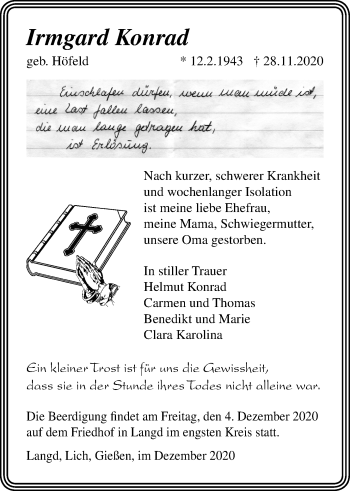 Irmgard Konrad
geb. Höfeld * 12.2.1943 † 28.11.2020
Einschlafen dürfen, wenn man müde ist,
eine Last fallen lassen,
die man lange getragen hat,
ist Erlösung.
Nach kurzer, schwerer Krankheit
und wochenlanger Isolation
ist meine liebe Ehefrau,
meine Mama, Schwiegermutter,
unsere Oma gestorben.
In stiller Trauer
Helmut Konrad
Carmen und Thomas
Benedikt und Marie
Clara Karolina
Ein kleiner Trost ist für uns die Gewissheit,
dass sie in der Stunde ihres Todes nicht alleine war.
Die Beerdigung findet am Freitag, den 4. Dezember 2020
auf dem Friedhof in Langd im engsten Kreis statt.
Langd, Lich, Gießen, im Dezember 2020